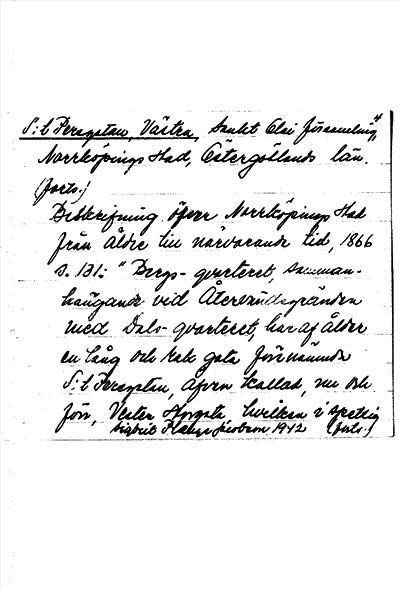 S:t Persgatan, Västra, Sankt Olai församling, 4
Norrköpings stad, Östergötlands län.
(forts.)
Beskrifning öfver Norrköpings stad
från äldre till närvarande tid, 1866
s. 131: "Bergs-qvarteret, samman-
hängande vid Återvändsgränden
med Dals-qvarteret, har af ålder
en lång och rak gata förenämnde
S:t Persgatan, äfven kallad, nu och
förr, Vester gata hvilken i
Sigbrit Plænge Jacobson 1942 (forts.)